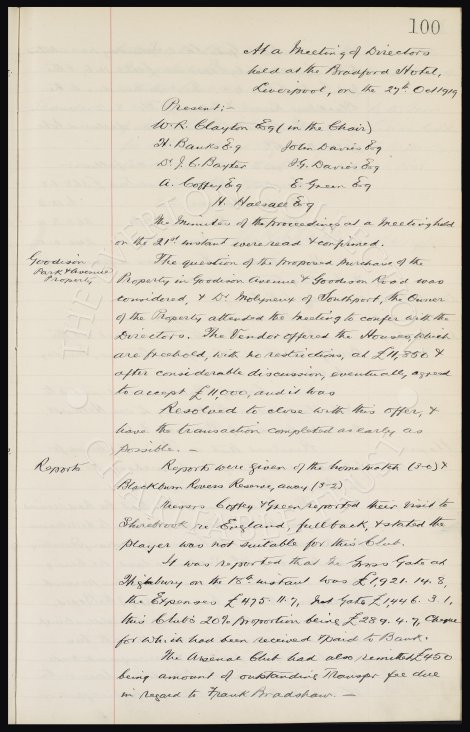 100
At a Meeting of Directors
held at the Bradford Hotel,
Liverpool, on the 27th Oct 1919
Present:-
W.R. Clayton Esq (in the Chair)
H. Banks Esq John Davies Esq
Dr J.C. Baxter J.G. Davies Esq
A. Coffey Esq E. Green Esq
H. Halsall Esq
The Minutes of the proceedings at a Meeting held
on the 21st instant were read & confirmed.
Goodison
Park & Avenue
Property
The question of the proposed purchase of the
Property in Goodison Avenue & Goodison Road was
considered, & Dr Molyneux of Southport, the Owner
of the Property attended the Meeting to confer with the
Directors. The Vendor offered the Houses, which
are freehold, with no restrictions, at £11,850 &
after considerable discussion, eventually, agreed
to accept £11,000, and it was
Resolved to close with this offer, &
have the transaction completed as early as
possible. -
Reports
Reports were given of the home match (3-0) &
Blackburn Rovers Reserve, away (3-2)
Messrs Coffey & Green reported their visit to
Shirebrook re England, full back, & stated the
player was not suitable for this Club.
It was reported that the Gross Gate at
Highbury on the 18th instant was £1,921.14.8,
the Expenses £475.11.7, Net Gate £1446.3.1,
this Club's 20% proportion being £289.4.7, Cheque
for which had been received & paid to Bank.
The Arsenal Club had also remitted £450
being amount of outstanding Transfer fee due
in regard to Frank Bradshaw. -